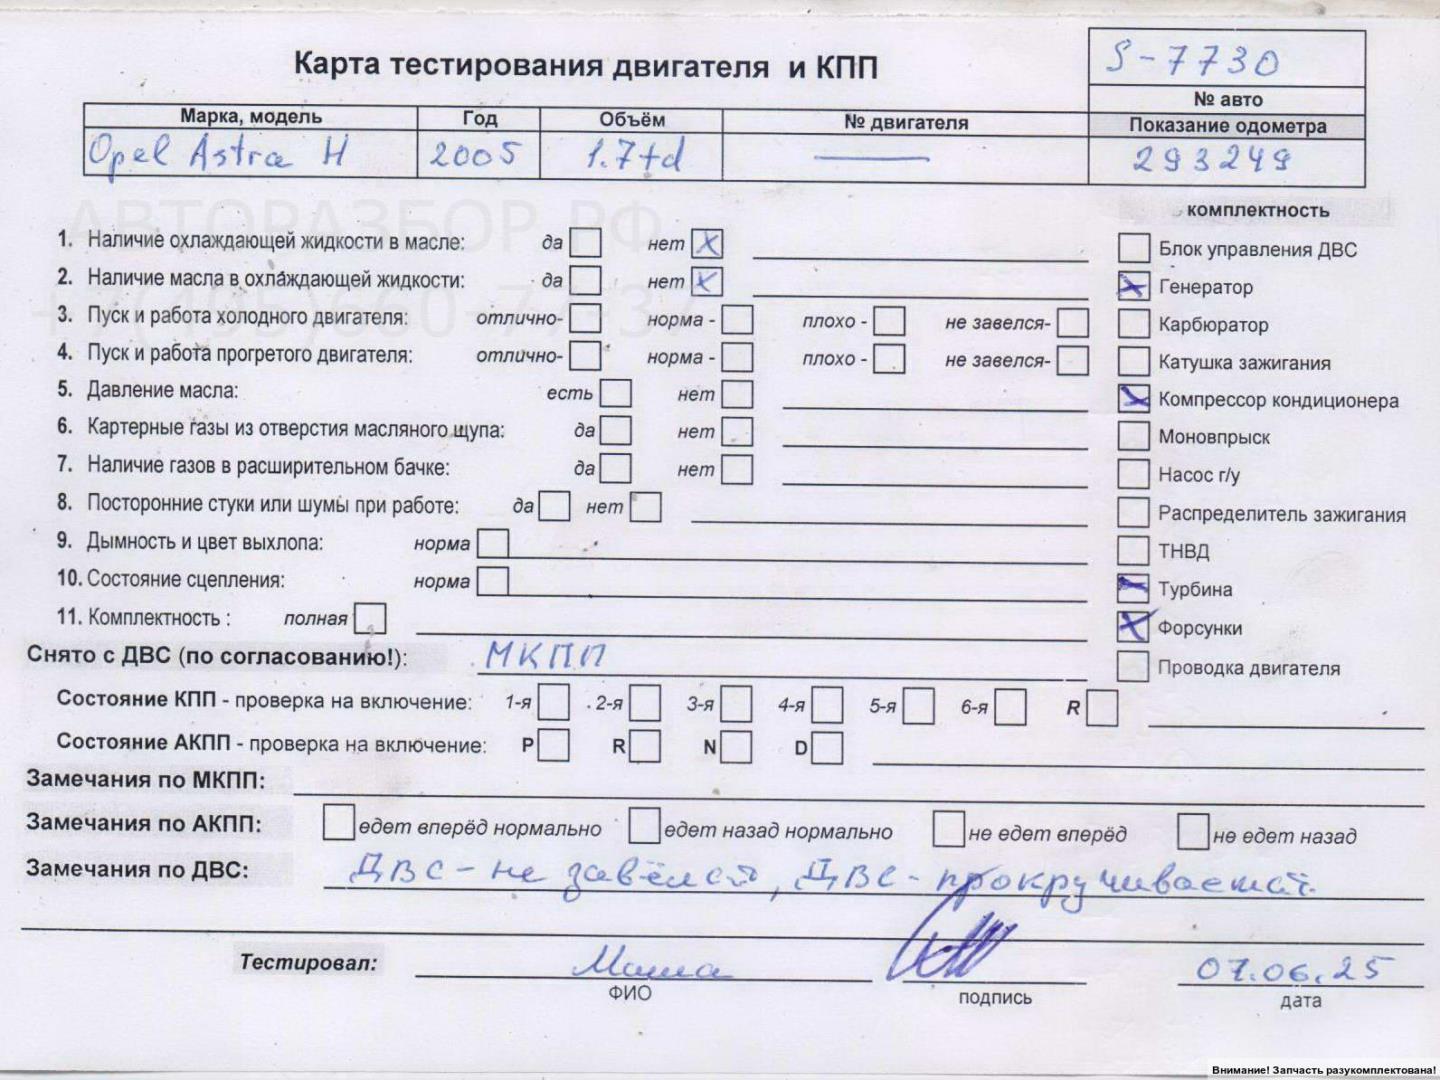 Карта тестирования двигателя и КПП
S-7730
№ авто
Марка, модель Год Объём № двигателя Показание одометра
Opel Astra H 2005 1.7td — 293249
АВТОРАЗБОР.РФ
+7(495)660-77-37
комплектность
1. Наличие охлаждающей жидкости в масле: да нет x
Блок управления ДВС
2. Наличие масла в охлаждающей жидкости: да нет x
Генератор
3. Пуск и работа холодного двигателя: отлично- норма - плохо - не завелся-
Карбюратор
4. Пуск и работа прогретого двигателя: отлично- норма - плохо - не завелся-
Катушка зажигания
5. Давление масла: есть нет
Компрессор кондиционера
6. Картерные газы из отверстия масляного щупа: да нет
Моновпрыск
7. Наличие газов в расширительном бачке: да нет
Насос г/у
8. Посторонние стуки или шумы при работе: да нет
Распределитель зажигания
9. Дымность и цвет выхлопа: норма
ТНВД
10. Состояние сцепления: норма
Турбина
11. Комплектность : полная
Форсунки
Снято с ДВС (по согласованию!): МКПП
Проводка двигателя
Состояние КПП - проверка на включение: 1-я 2-я 3-я 4-я 5-я 6-я R
Состояние АКПП - проверка на включение: P R N D
Замечания по МКПП:
Замечания по АКПП: едет вперёд нормально едет назад нормально не едет вперёд не едет назад
Замечания по ДВС: ДВС - не завёлся, ДВС - прокручивается.
Тестировал: Маша 07.06.25
ФИО подпись дата
Внимание! Запчасть разукомплектована!